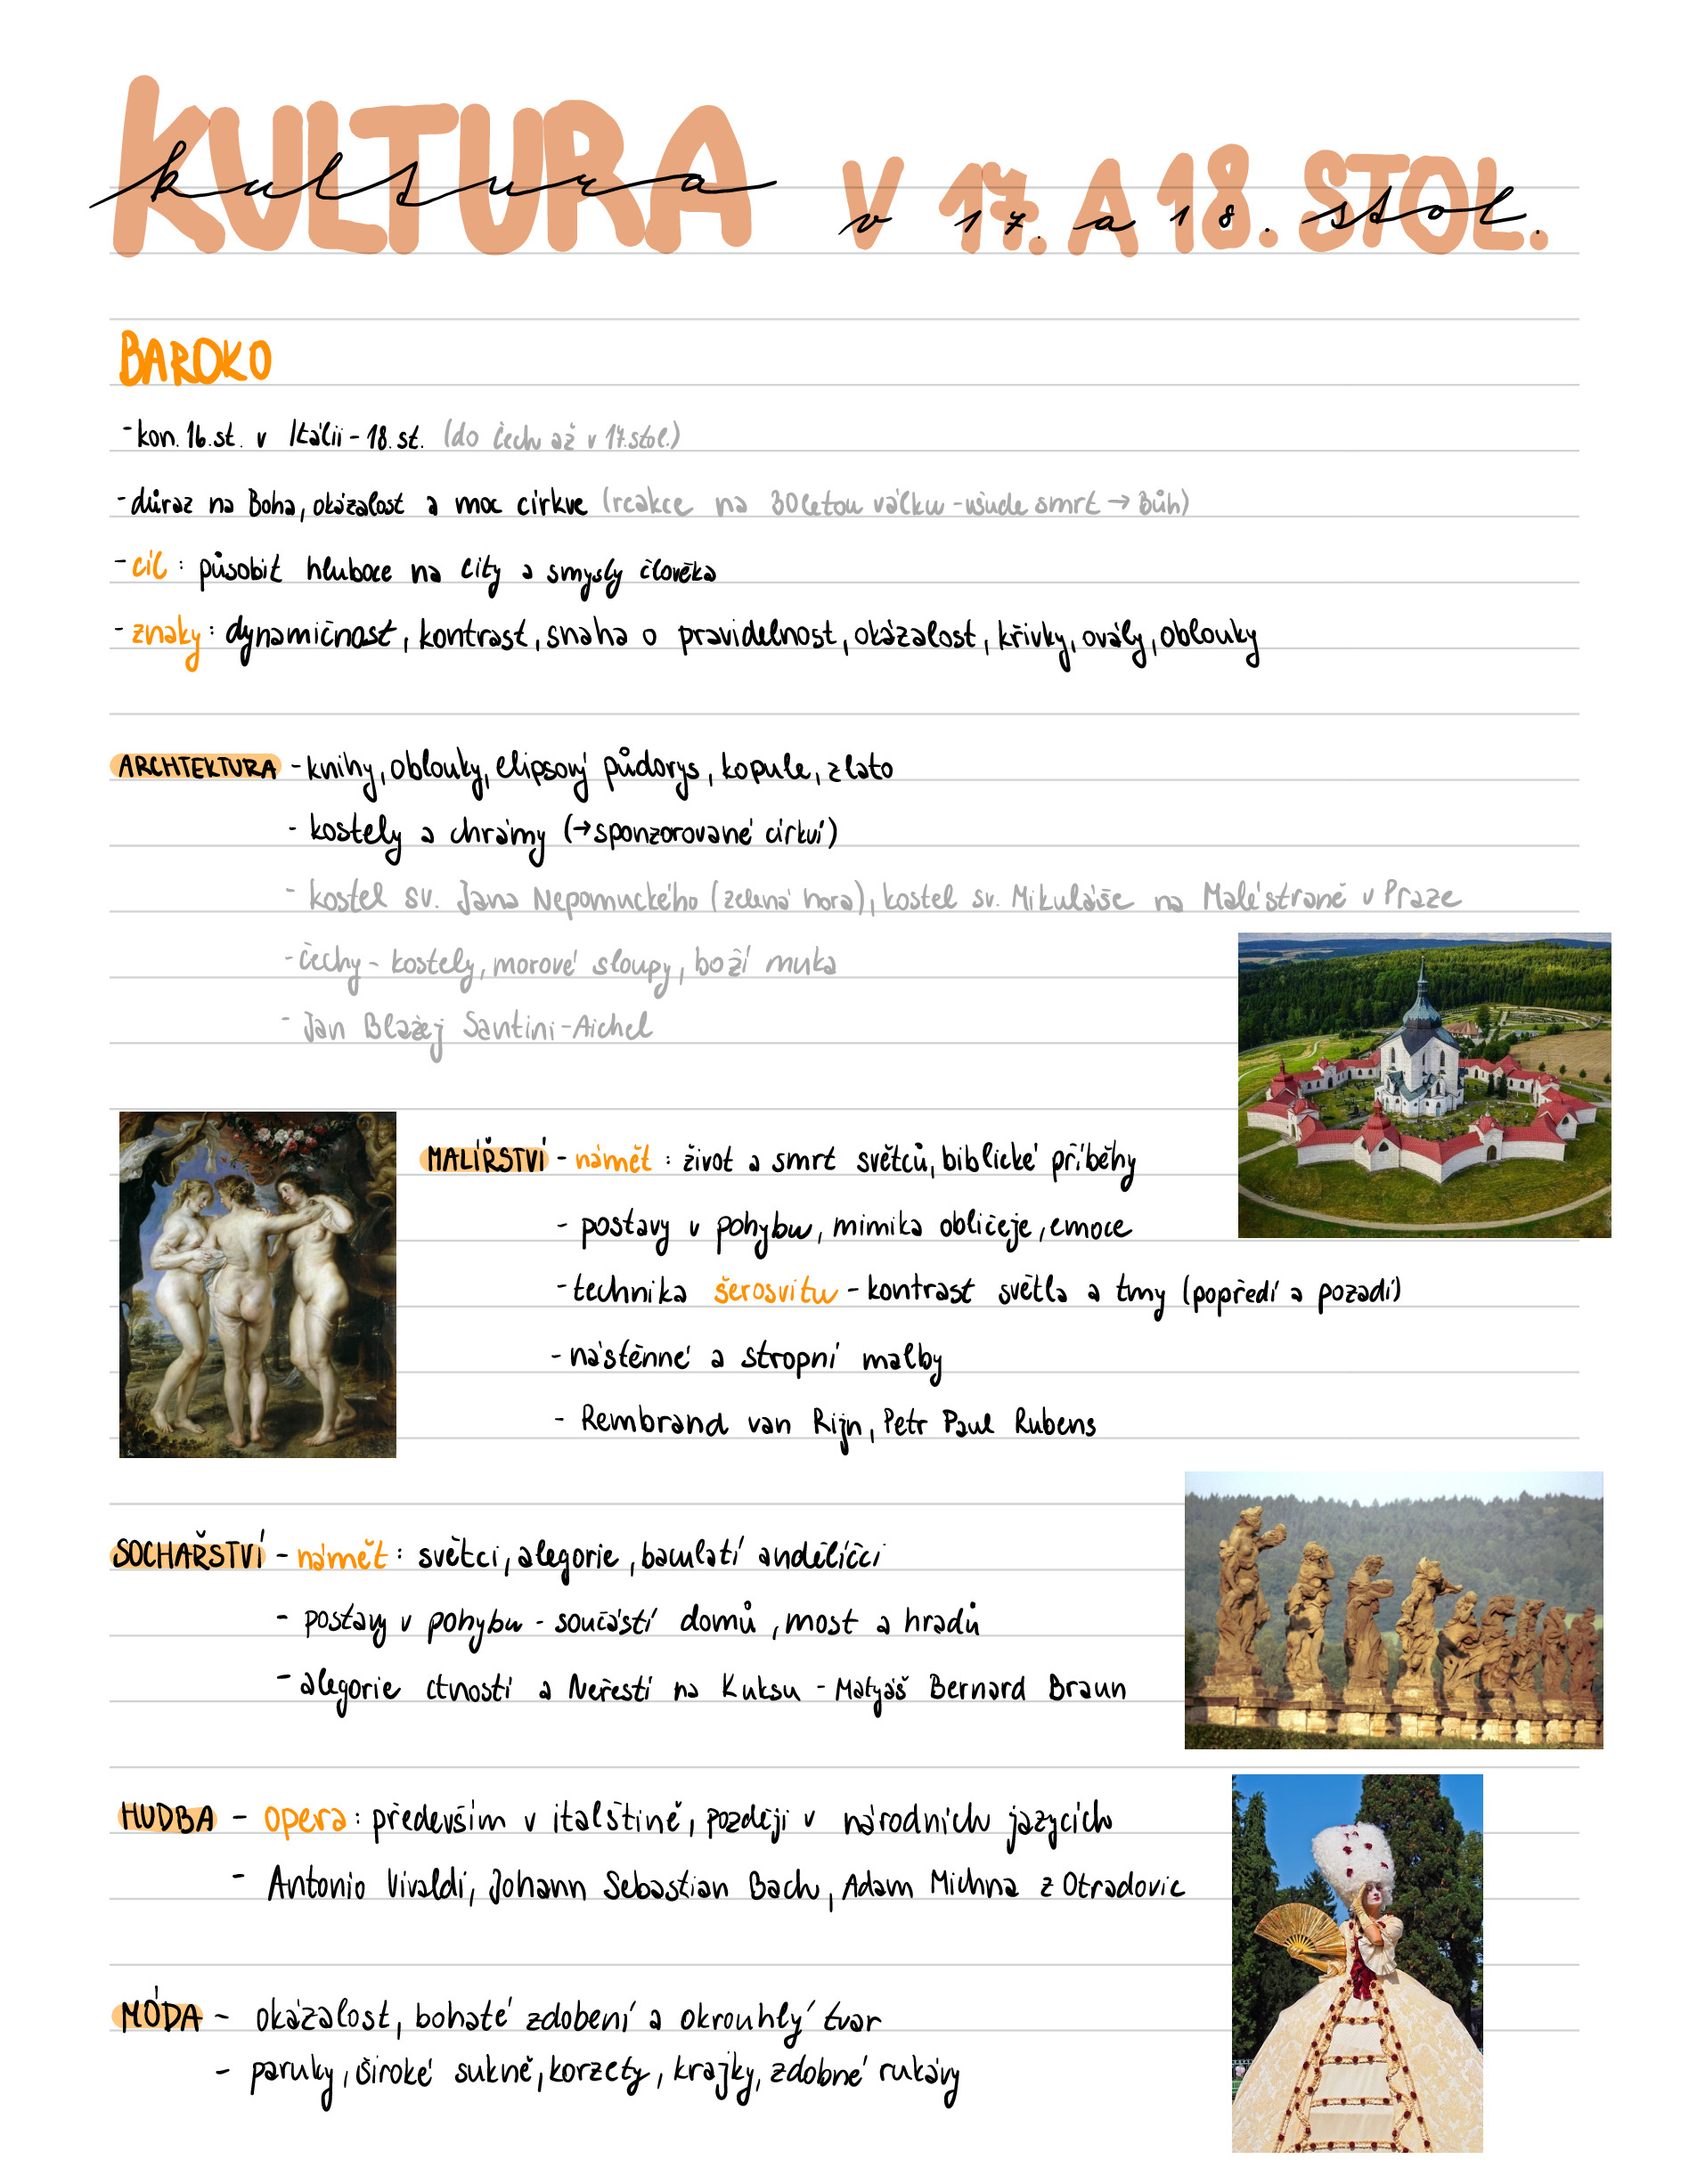 KULTURA V 17. A 18. STOL.
kultura v 17. a 18. stol.
BAROKO
- kon. 16. st. v Itálii - 18. st. (do Čech až v 17. stol.)
- důraz na Boha, okázalost a moc církve (reakce na 30letou válku - všude smrt → Bůh)
- cíl : působit hluboce na city a smysly člověka
- znaky : dynamičnost, kontrast, snaha o pravidelnost, okázalost, křivky, ovály, oblouky
ARCHTEKTURA - knihy, oblouky, elipsový půdorys, kopule, zlato
- kostely a chrámy (→ sponzorované církví)
- kostel sv. Jana Nepomuckého (zelená hora), kostel sv. Mikuláše na Malé straně v Praze
- Čechy - kostely, morové sloupy, boží muka
- Jan Blažej Santini-Aichel
MALÍŘSTVÍ - námět : život a smrt světců, biblické příběhy
- postavy v pohybu, mimika obličeje, emoce
- technika šerosvitu - kontrast světla a tmy (popředí a pozadí)
- nástěnné a stropní malby
- Rembrand van Rijn, Petr Paul Rubens
SOCHAŘSTVÍ - námět : světci, alegorie, baculatí andělíčci
- postavy v pohybu - součástí domů, most a hradů
- alegorie ctností a Neřestí na Kuksu - Matyáš Bernard Braun
HUDBA - opera : především v italštině, později v národních jazycích
- Antonio Vivaldi, Johann Sebastian Bach, Adam Michna z Otradovic
MÓDA - okázalost, bohaté zdobení a okrouhlý tvar
- paruky, široké sukně, korzety, krajky, zdobné rukávy